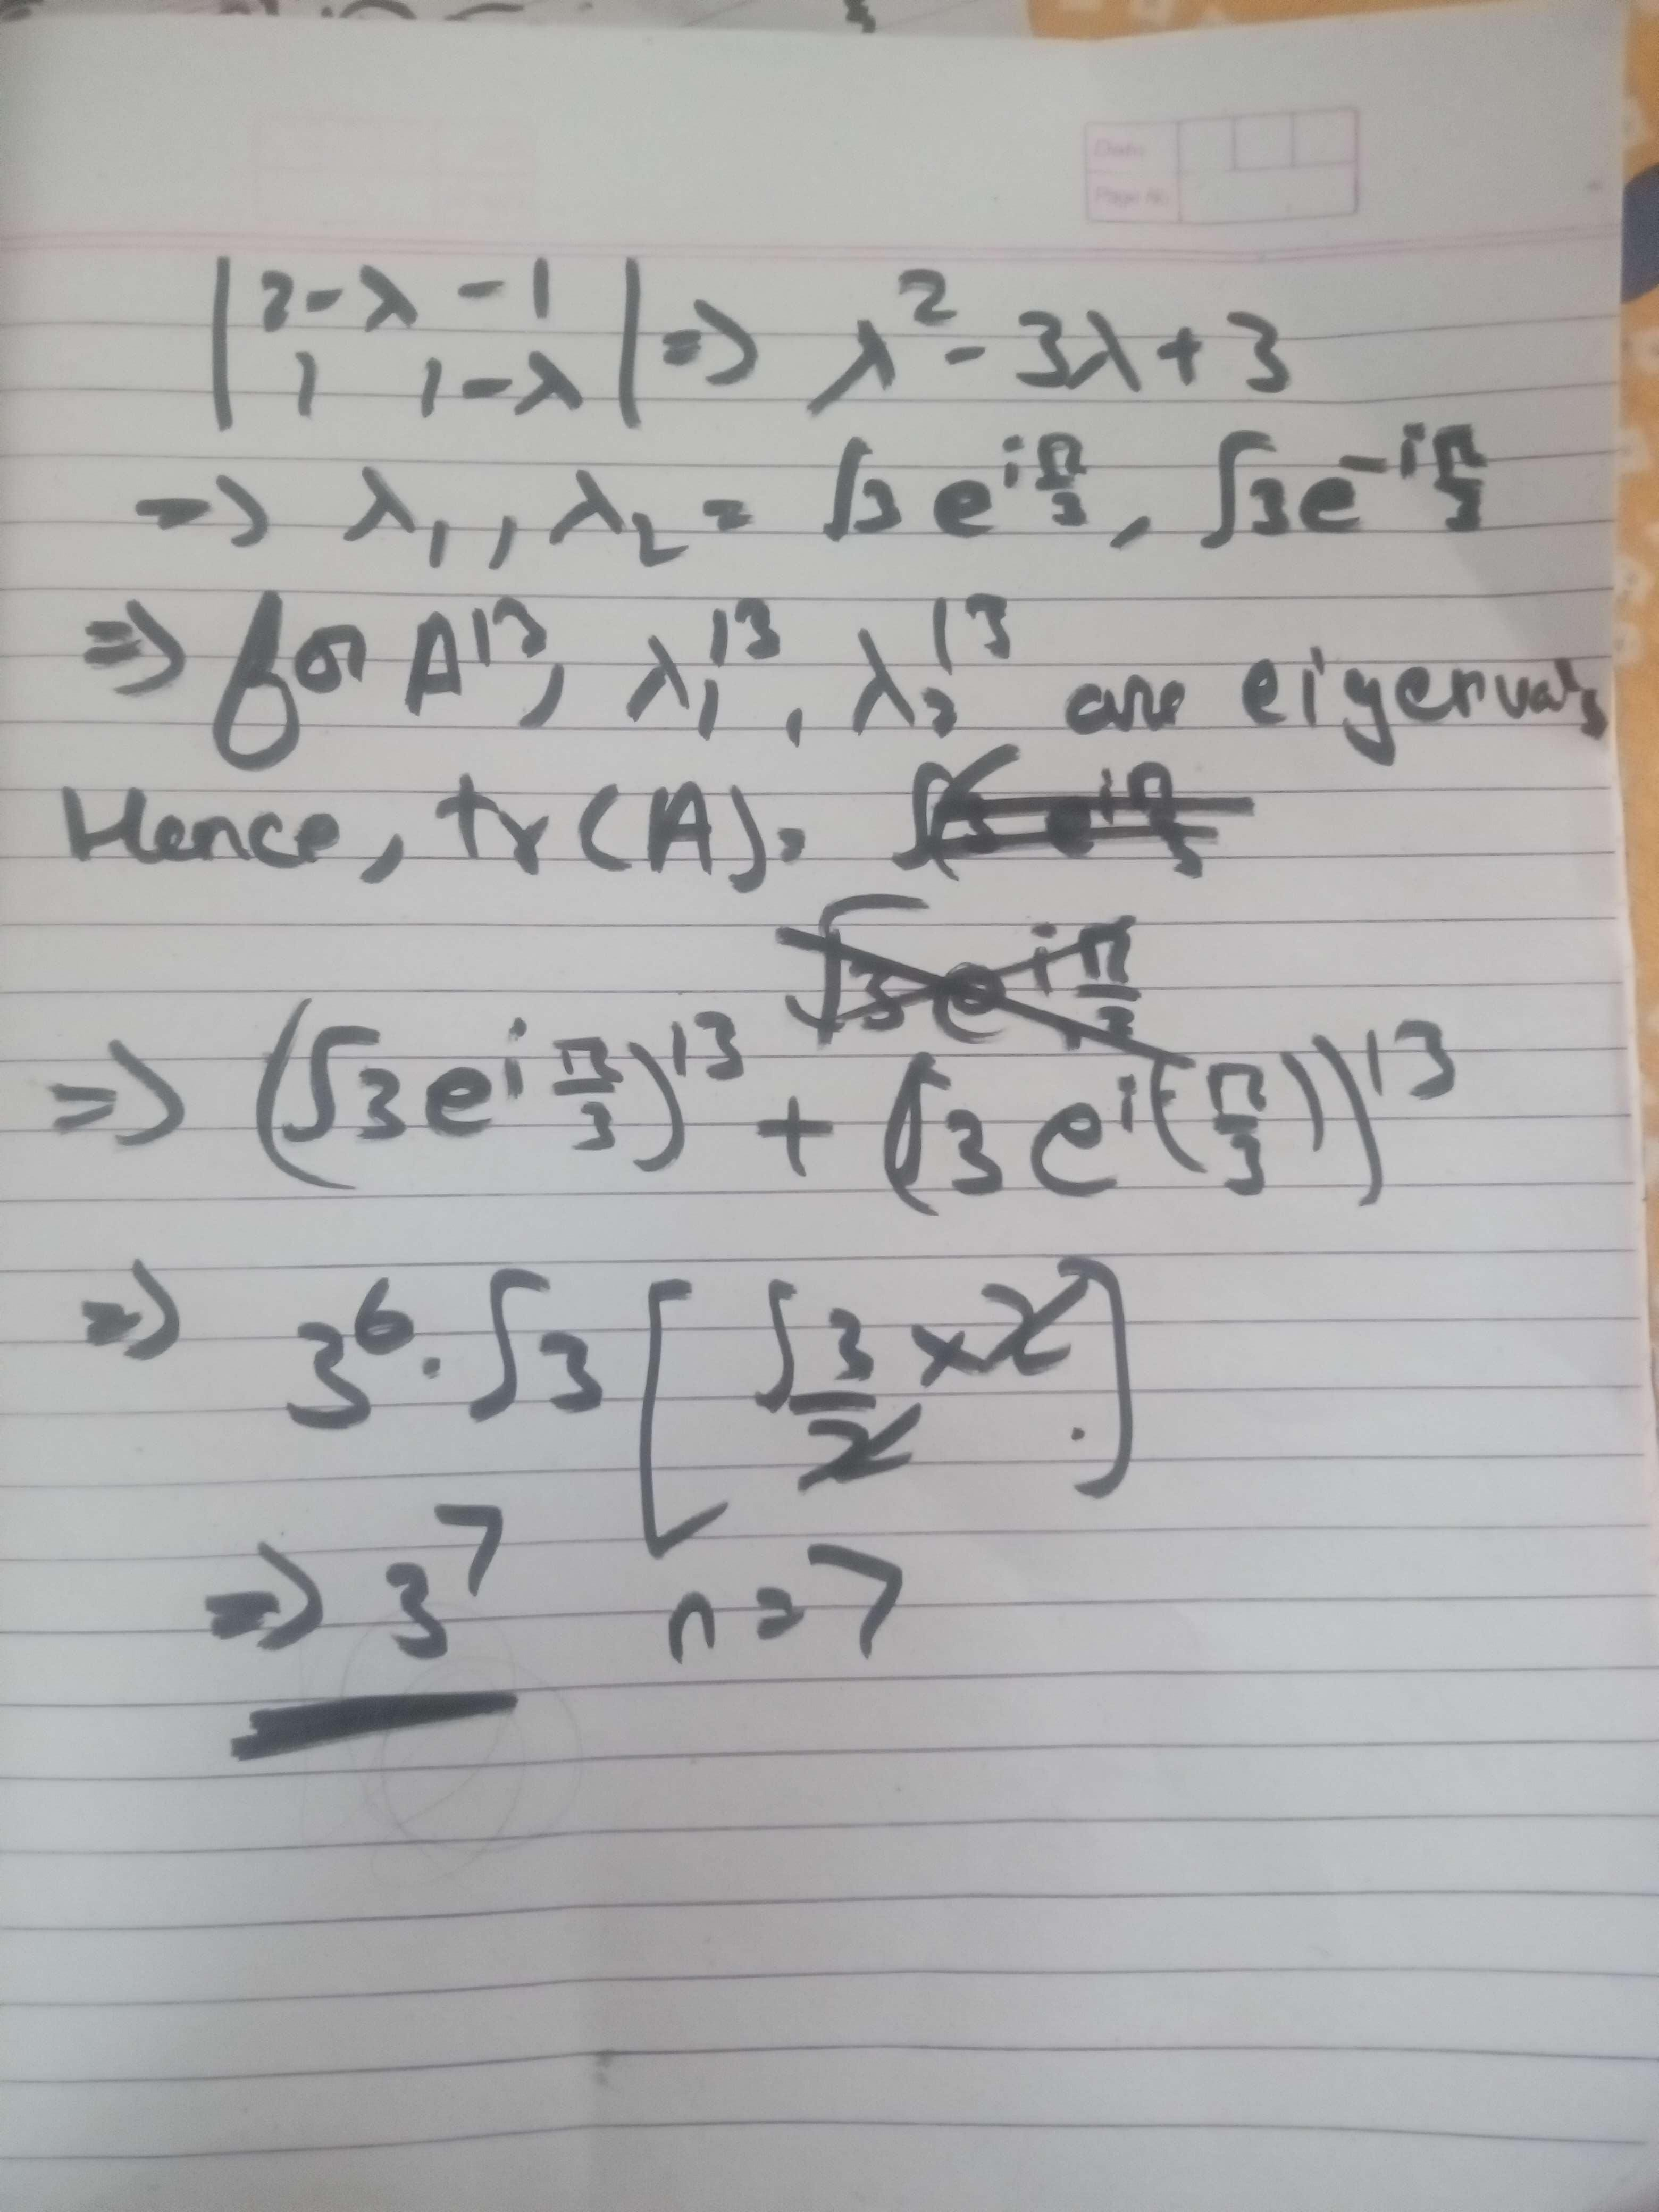 Date
Page No
| 2-λ -1 |
| 1 1-λ | => λ² - 3λ + 3
=> λ₁, λ₂ = √3 e^{iπ/3}, √3 e^{-iπ/3}
=> for A¹³, λ₁¹³, λ₂¹³ are eigenvals
Hence, tr(A) =
=> (√3 e^{iπ/3})¹³ + (√3 e^{i(-π/3)})¹³
=> 3⁶ · √3 [√3/2 × 2]
=> 3⁷ n = 7